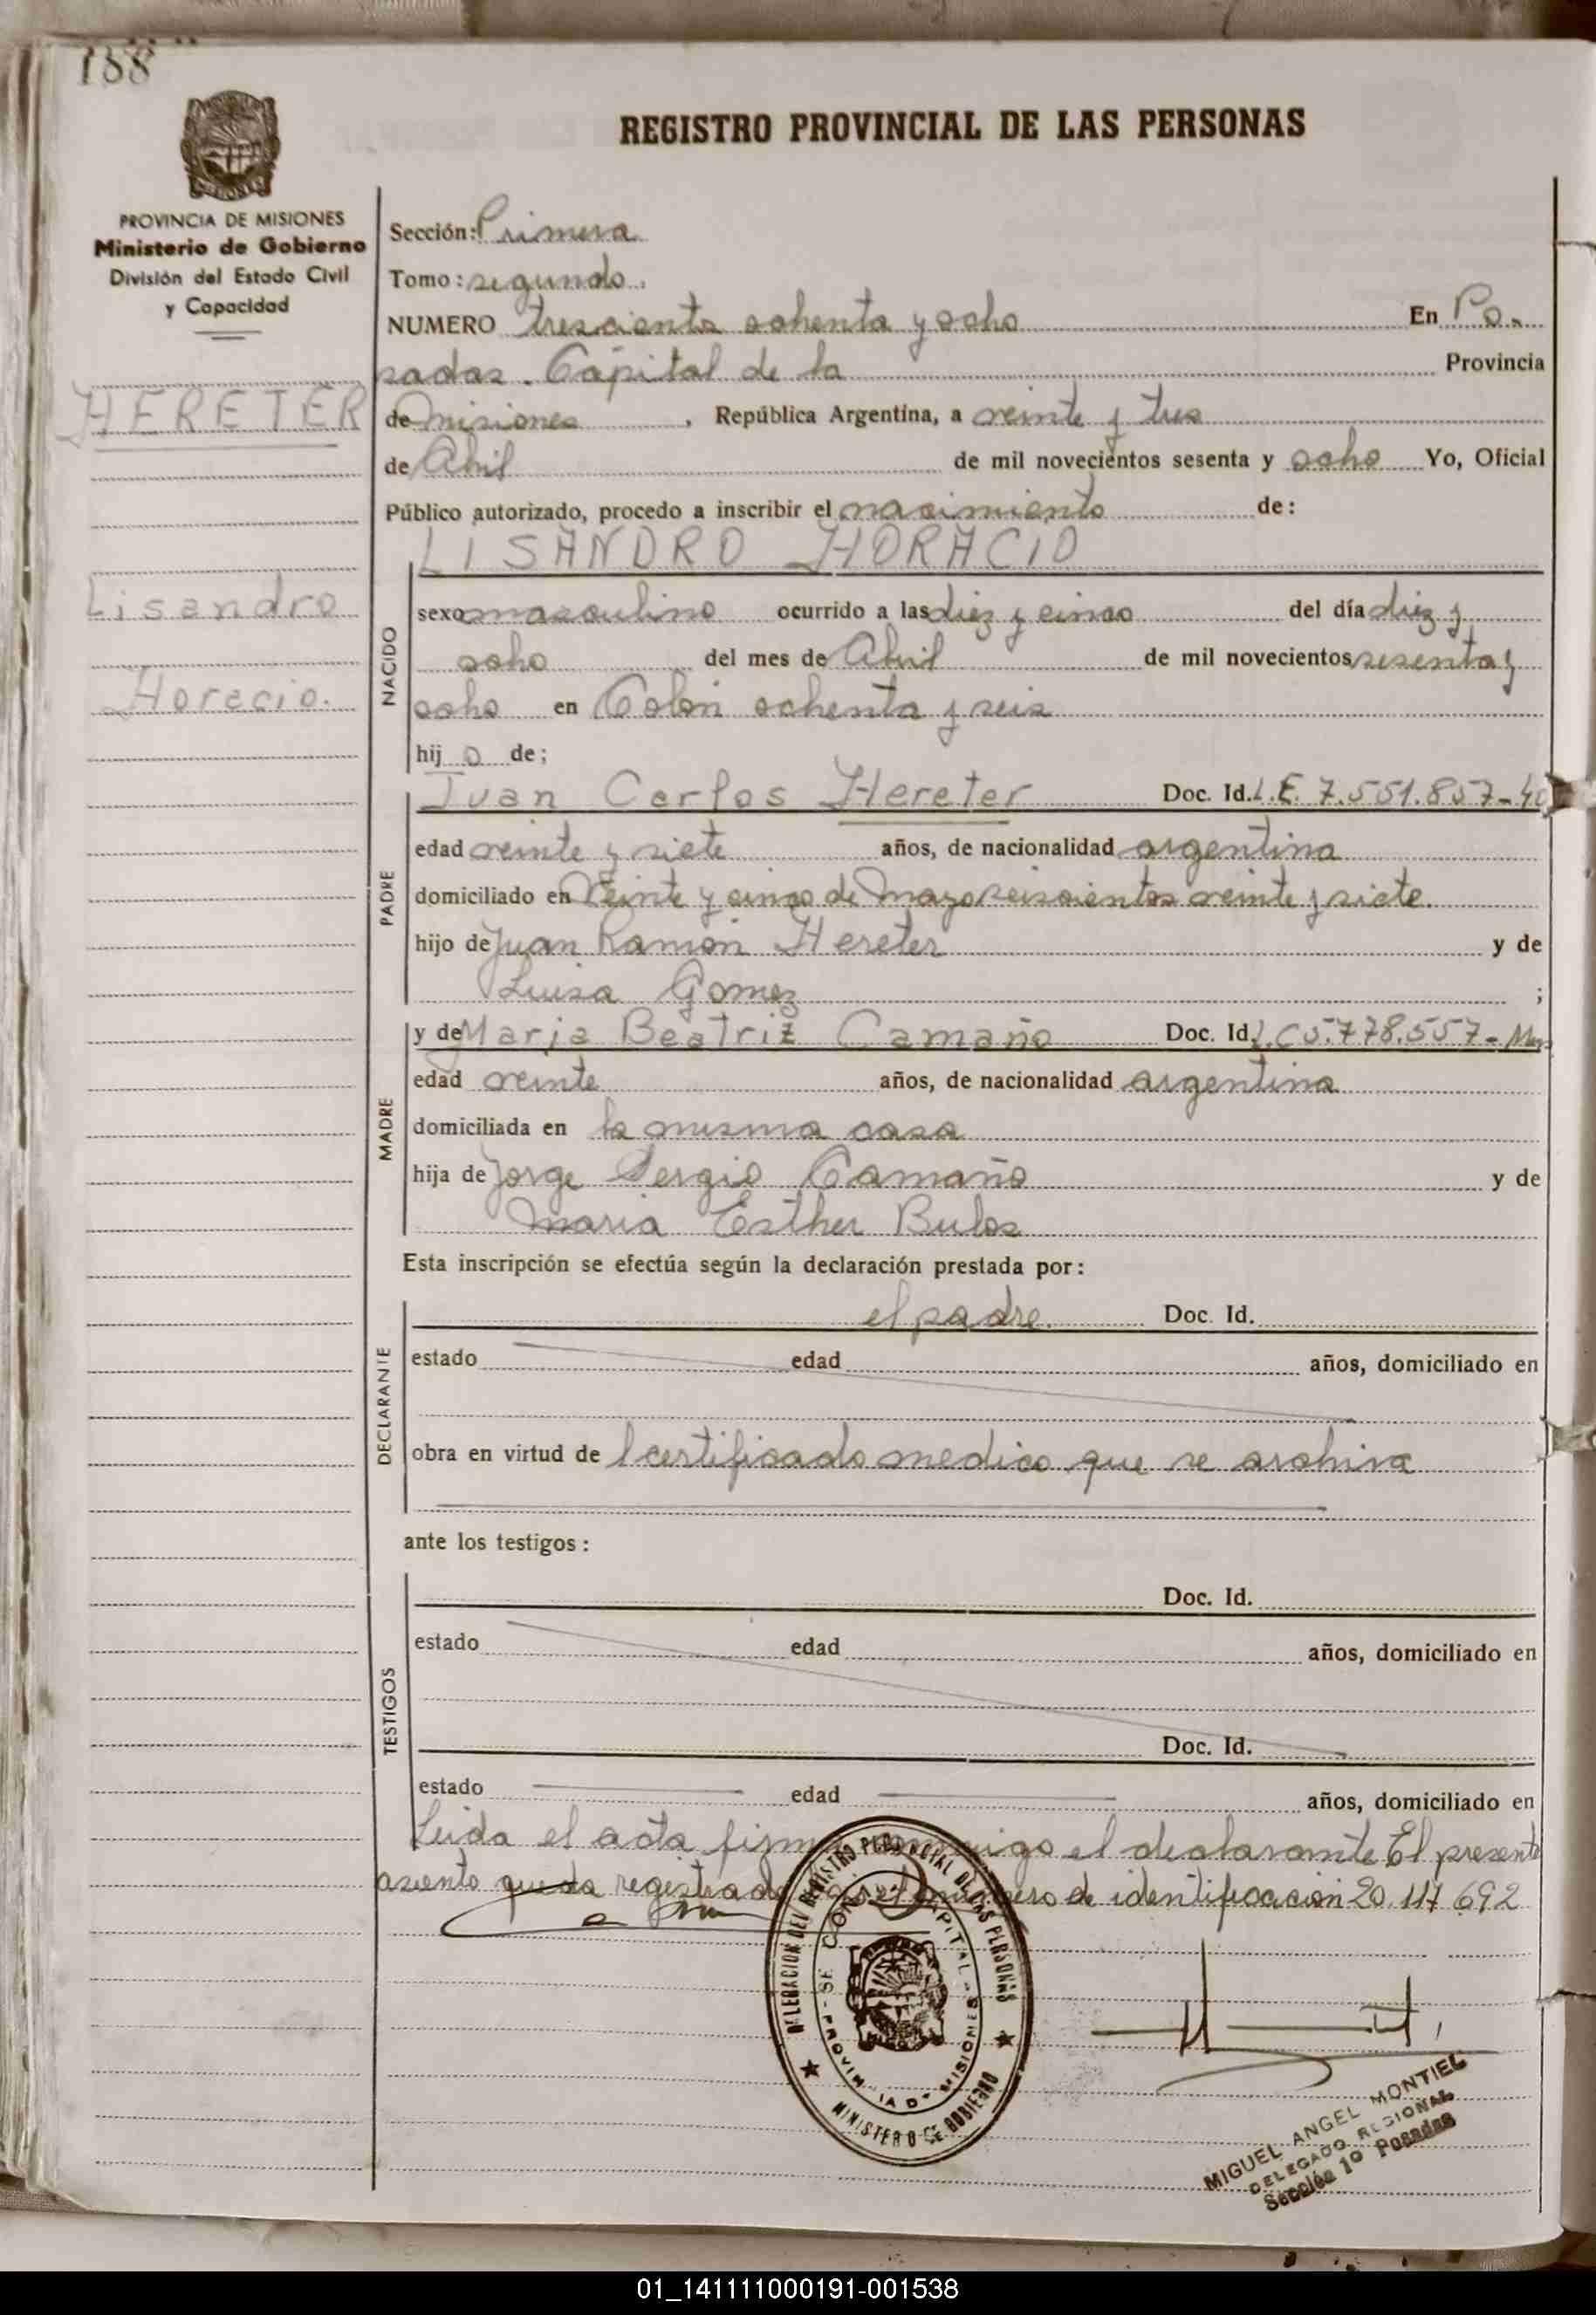 188
REGISTRO PROVINCIAL DE LAS PERSONAS
PROVINCIA DE MISIONES
Ministerio de Gobierno
División del Estado Civil
y Capacidad
HERETER
Lisandro
Horacio.
Sección: Primera
Tomo: segundo.
NUMERO trescientos ochenta y ocho En Po-
sadas. Capital de la Provincia
de misiones, República Argentina, a veinte y tres
de Abril de mil novecientos sesenta y ocho Yo, Oficial
Público autorizado, procedo a inscribir el nacimiento de:
LISANDRO HORACIO
NACIDO
sexo masculino ocurrido a las diez y cinco del día diez y
ocho del mes de Abril de mil novecientos sesenta y
ocho en Colon ochenta y seis
hijo de;
Juan Carlos Hereter Doc. Id. L.E. 7.551.857-
PADRE
edad veinte y siete años, de nacionalidad argentina
domiciliado en Veinte y cinco de Mayo seiscientos veinte y siete.
hijo de Juan Ramon Hereter y de
Luisa Gomez ;
y de Maria Beatriz Camaño Doc. Id. L.C 5.778.557-
MADRE
edad veinte años, de nacionalidad argentina
domiciliada en la misma casa
hija de Jorge Sergio Camaño y de
Maria Esther Bulos
Esta inscripción se efectúa según la declaración prestada por:
el padre. Doc. Id.
DECLARANTE
estado edad años, domiciliado en
obra en virtud de l certificado medico que se archiva
ante los testigos:
TESTIGOS
Doc. Id.
estado edad años, domiciliado en
Doc. Id.
estado edad años, domiciliado en
Leida el acta firma conmigo el declarante El presente
asiento queda registrado numero de identificacion 20.117.692
DELEGACION DEL REGISTRO PROVINCIAL DE LAS PERSONAS
MINISTERIO DE GOBIERNO
MIGUEL ANGEL MONTIEL
DELEGADO REGIONAL
Sección 1º Posadas
01_141111000191-001538